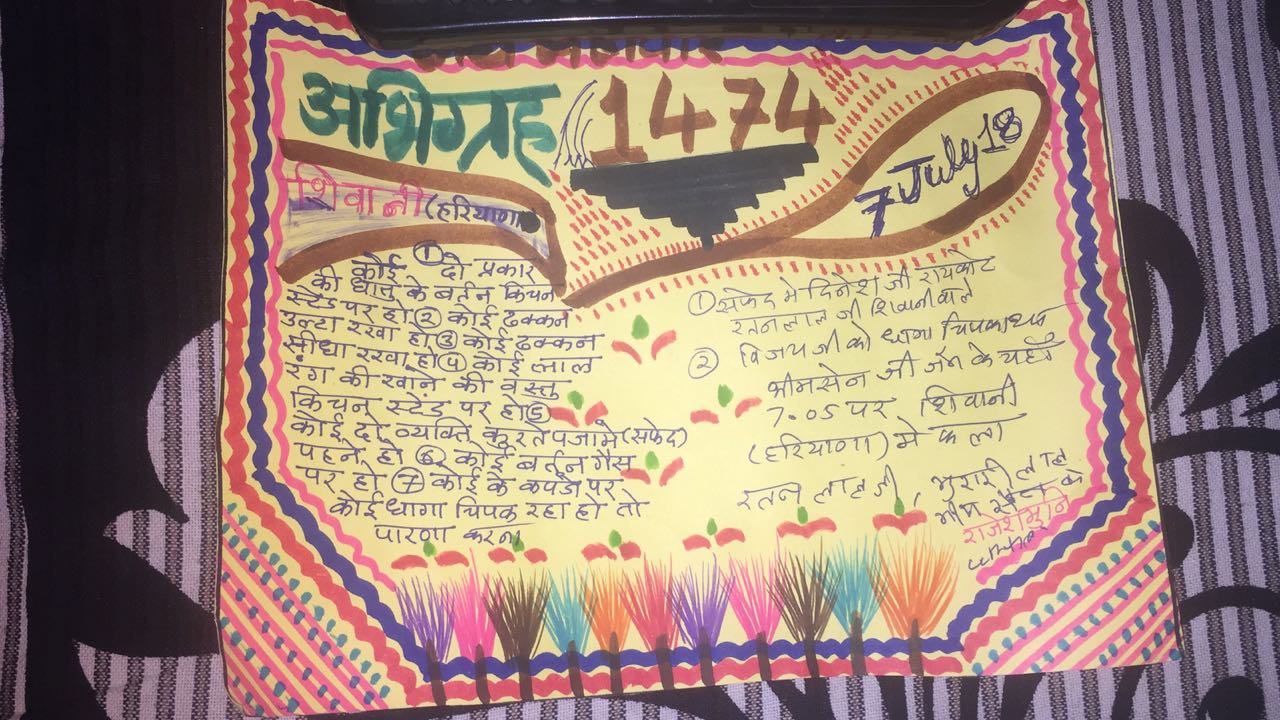 अभिग्रह 1474
7 July 18
शिवानी (हरियाणा
① कोई दो प्रकार
की धातु के बर्तन किचन
स्टेंड पर हो ② कोई ढक्कन
उल्टा रखा हो ③ कोई ढक्कन
सीधा रखा हो ④ कोई लाल
रंग की खाने की वस्तु
किचन स्टेंड पर हो ⑤
कोई दो व्यक्ति कुरते पजामे (सफेद)
पहने हो ⑥ कोई बर्तन गैस
पर हो ⑦ कोई के कपडे पर
कोई धागा चिपक रहा हो तो
पारणा करना
① सफेद मे दिनेश जी रायकोट
रतनलाल जी शिवानी वाले
② विजय जी को धागा चिपका था
भीमसेन जी जैन के यहाँ
7.05 पर शिवानी
(हरियाणा) मे फला
रतन लाल जी, मुरारी लाल
भीम सैन को
राजेश मुनि